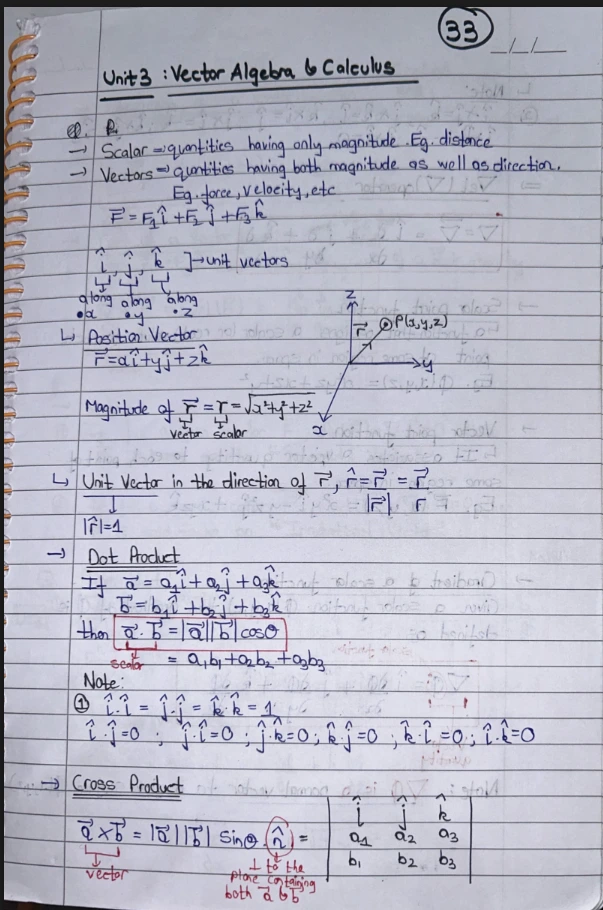 33
_/_/_
Unit 3 : Vector Algebra & Calculus
→ Scalar ⇒ quantities having only magnitude. Eg. distance
→ Vectors ⇒ quantities having both magnitude as well as direction.
Eg. force, velocity, etc
F⃗ = F₁î + F₂ĵ + F₃k̂
î, ĵ, k̂ ] → unit vectors
along along along
x y z
↳ Position Vector
r⃗ = xî + yĵ + zk̂
z
r⃗
P(x,y,z)
y
x
Magnitude of r⃗ = r = √x²+y²+z²
vector scalar
↳ Unit Vector in the direction of r⃗, r̂ = r⃗/|r⃗| = r⃗/r
|r̂| = 1
→ Dot Product
If a⃗ = a₁î + a₂ĵ + a₃k̂
b⃗ = b₁î + b₂ĵ + b₃k̂
then a⃗ . b⃗ = |a⃗||b⃗| cosθ
scalar
= a₁b₁ + a₂b₂ + a₃b₃
Note:
① î.î = ĵ.ĵ = k̂.k̂ = 1
î.ĵ = 0 ; ĵ.î = 0 ; ĵ.k̂ = 0 ; k̂.ĵ = 0 ; k̂.î = 0 ; î.k̂ = 0
→ Cross Product
a⃗ × b⃗ = |a⃗||b⃗| sinθ . n̂ =
î ĵ k̂
a₁ a₂ a₃
b₁ b₂ b₃
vector
⊥ to the
plane containing
both a⃗ & b⃗